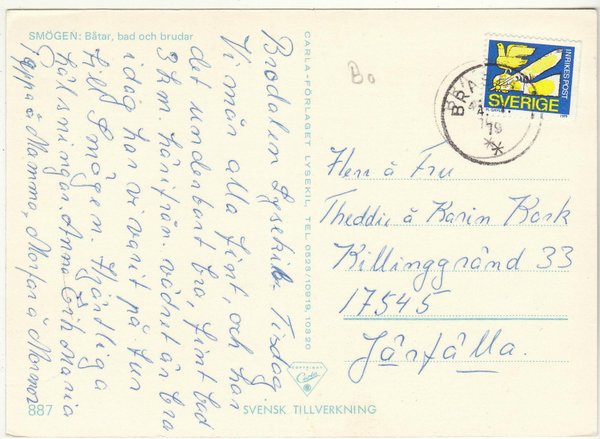 SMÖGEN: Båtar, bad och brudar
Brodalen Lysekil Tisdag
Vi mår alla fint, och har
det underbart bra, fint bad
3 km. härifrån. vädret är bra
idag har vi varit på tur
till Smögen. Hjärtliga
hälsningar. Anna Erik Maria
Pappa å Mamma, Morfar å Mormor
887
CARLA-FÖRLAGET LYSEKIL, TEL 0523/10619, 10320
Carla
SVENSK TILLVERKNING
Bo
INRIKES POST
SVERIGE
BRA
79
Herr å Fru
Theddie å Karin Kork
Killinggränd 33
17545
Järfälla.